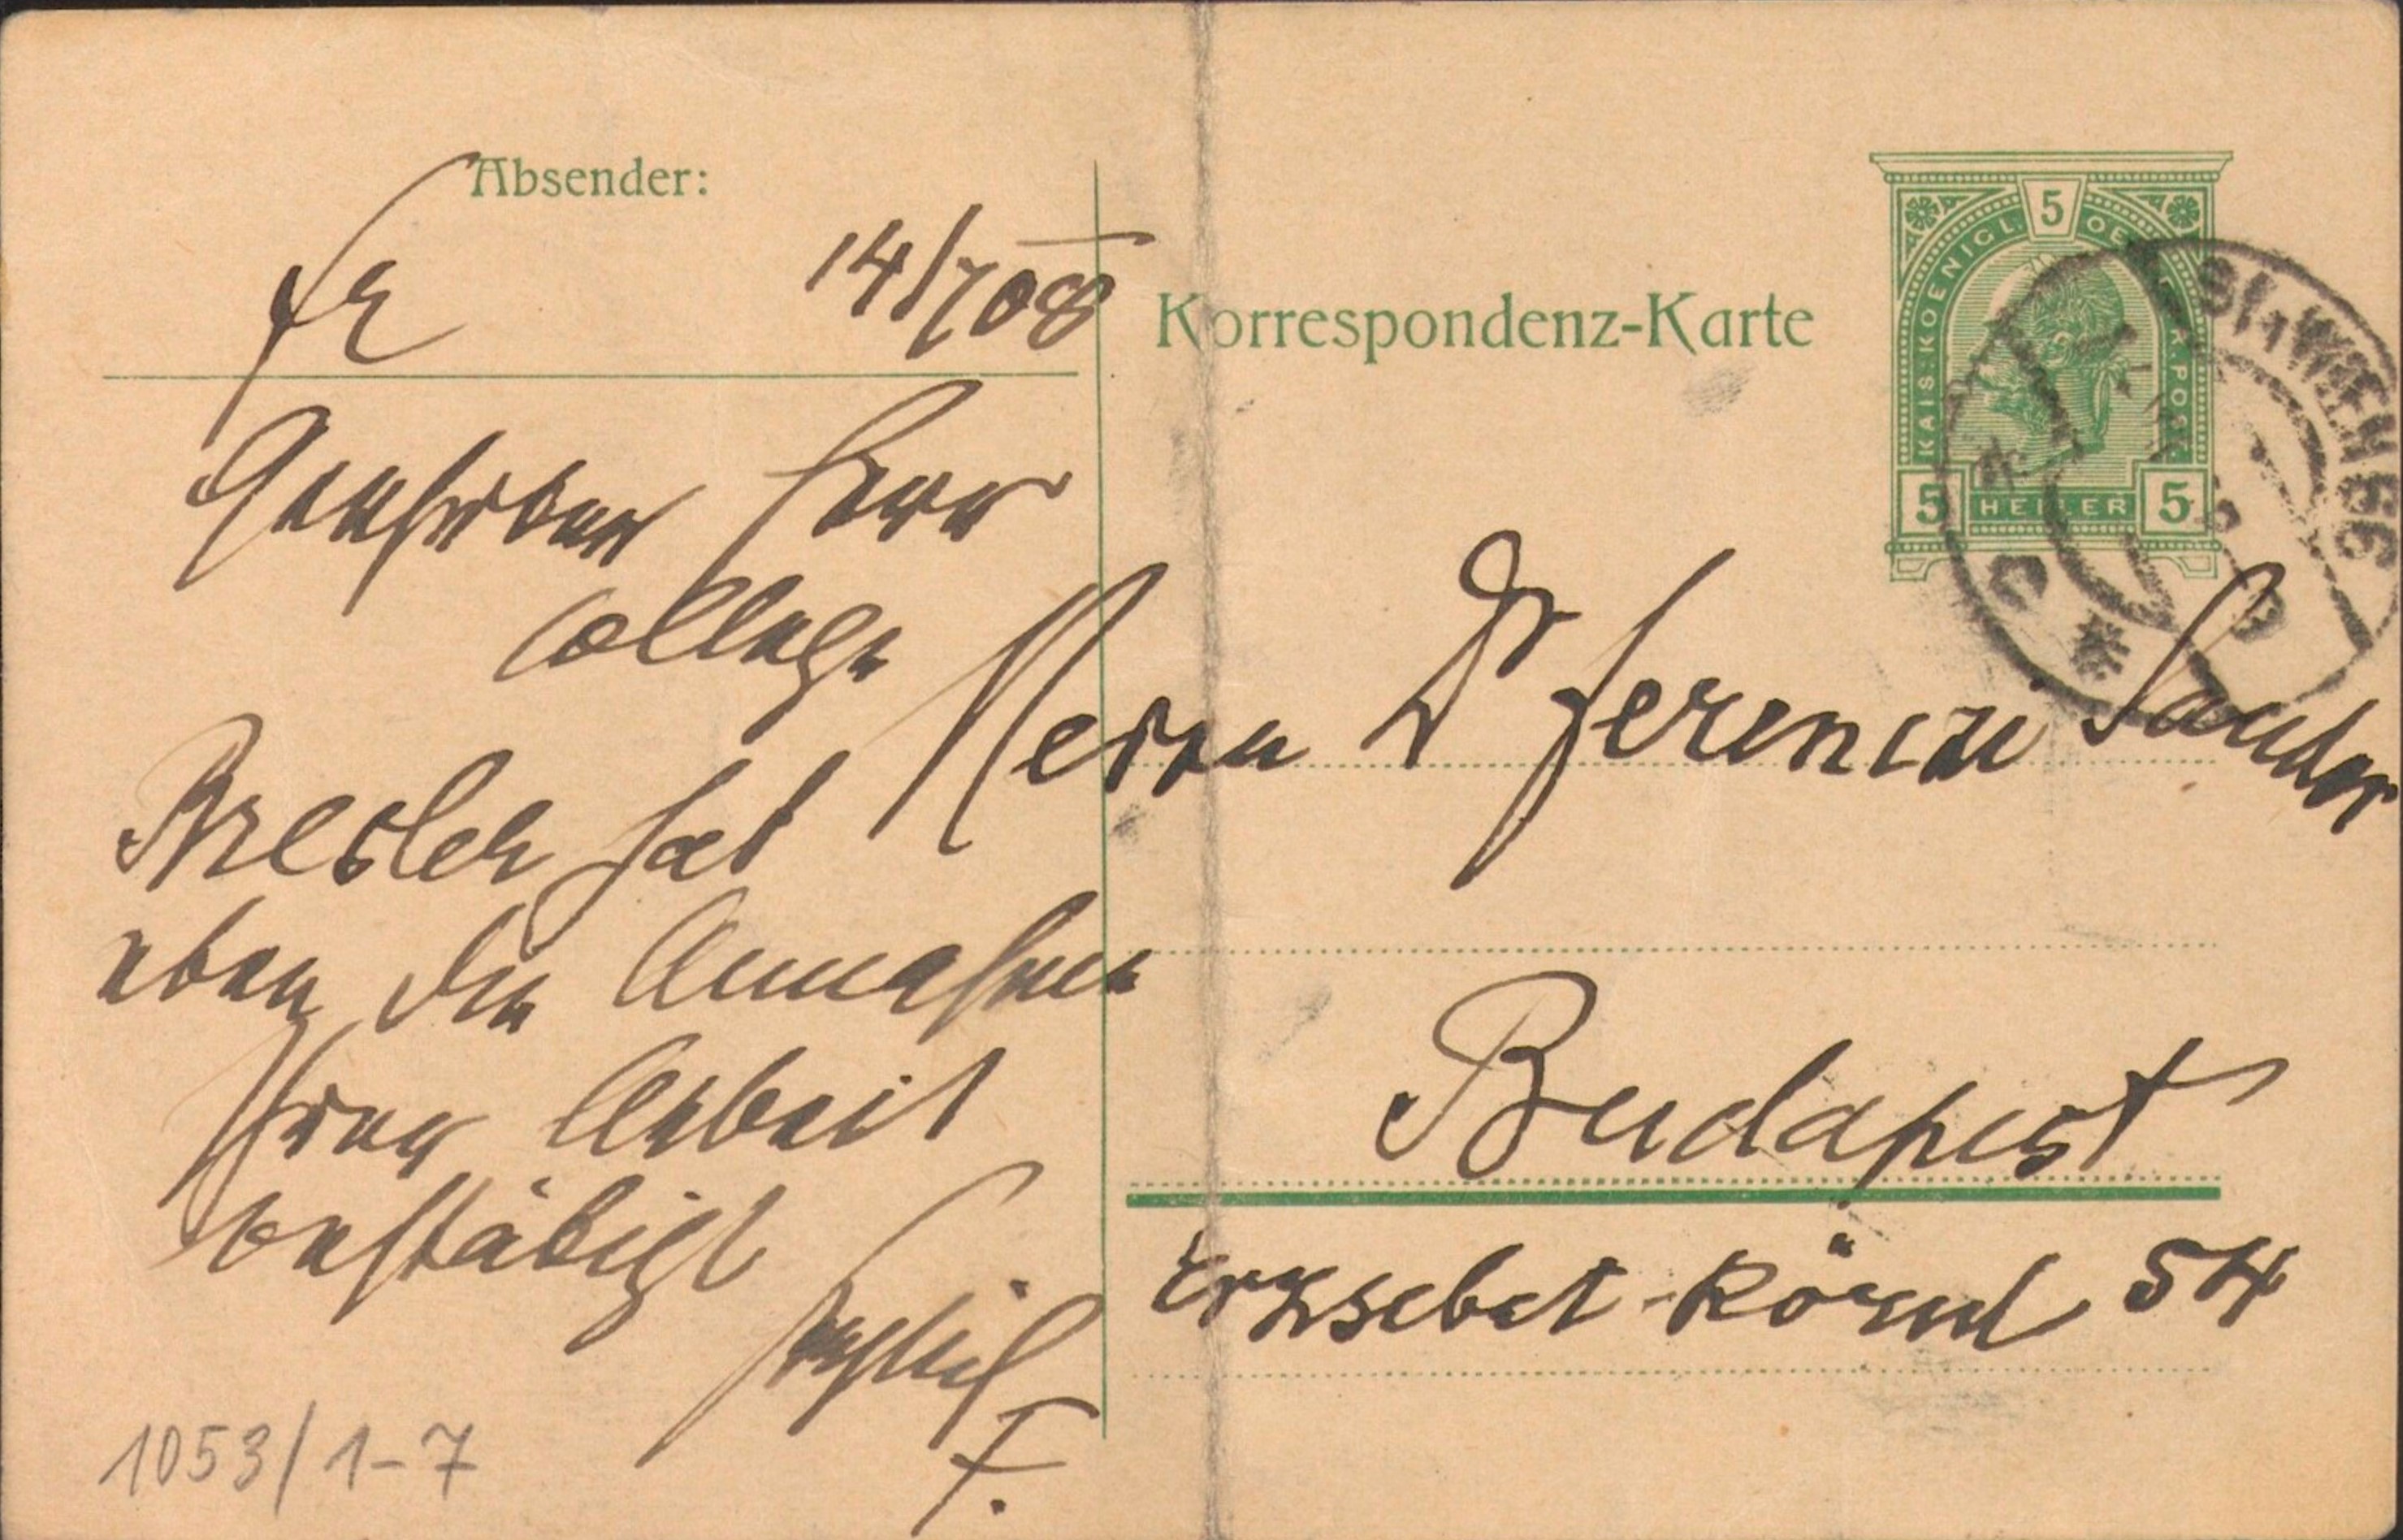 Absender:
Fr
14/7 08
Geehrter Herr
College
Bresler hat
eben die Annahme
Ihrer Arbeit
bestätigt
Herzlich
F.
1053/1-7
Korrespondenz-Karte
5
KAIS. KOENIGL. OE R. POST.
5 HELLER 5
9/1 WIEN 66
Herrn Dr Ferenczi Sandor
Budapest
Erzsebet-Körud 54